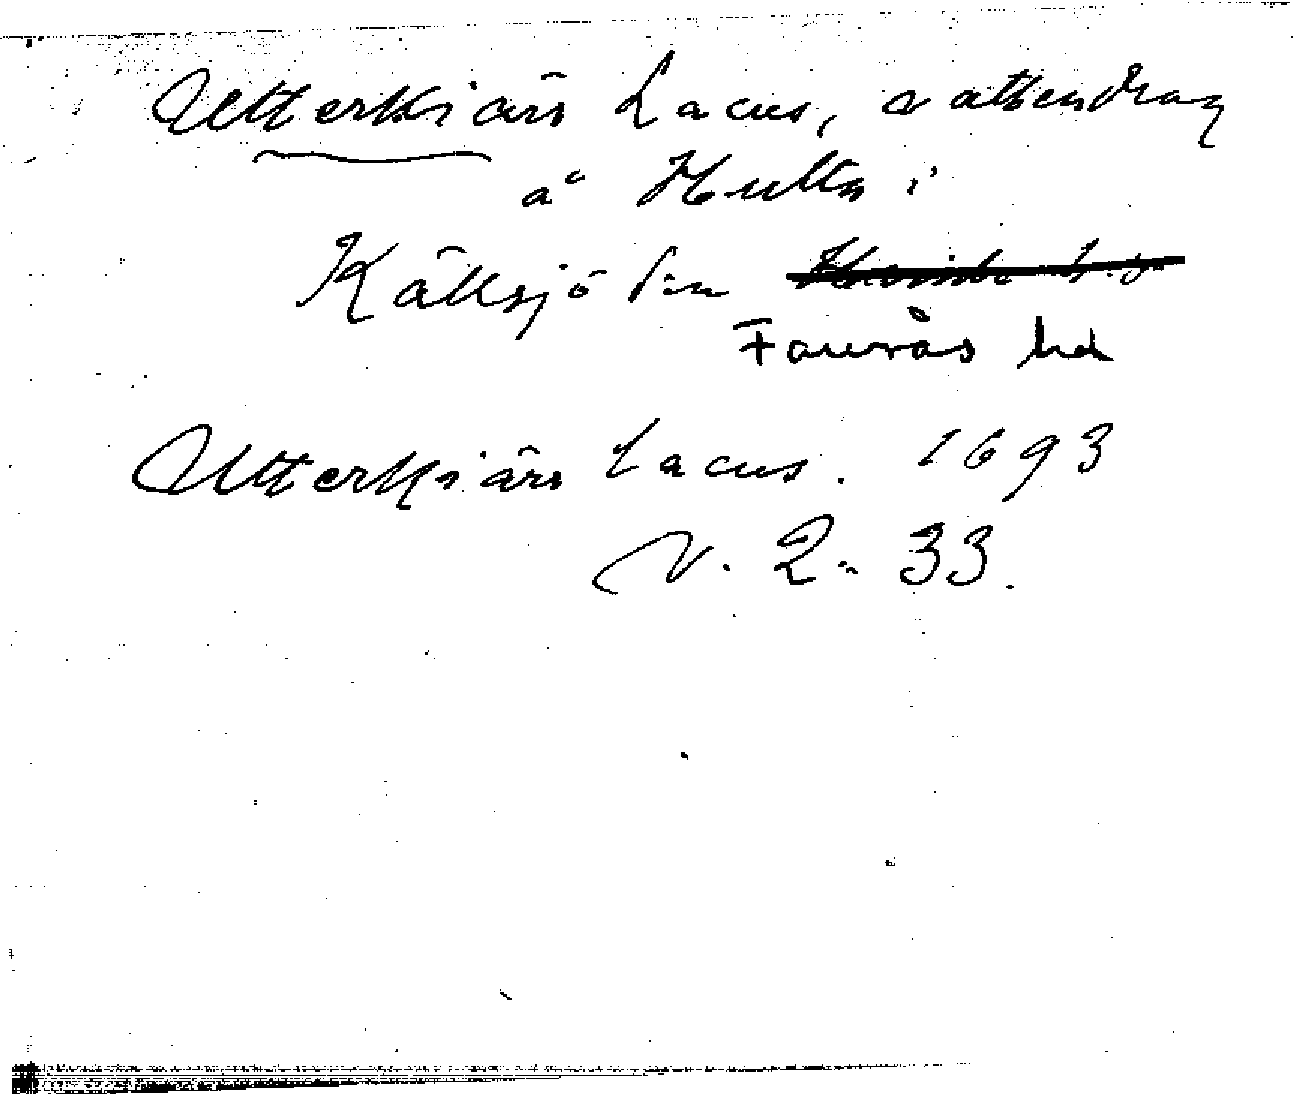 Utterkiärs Lacus, vattendrag
å Hulta i
Källsjö sn
Faurås hd
Utterkiärs Lacus. 1693
V. 2. 33.